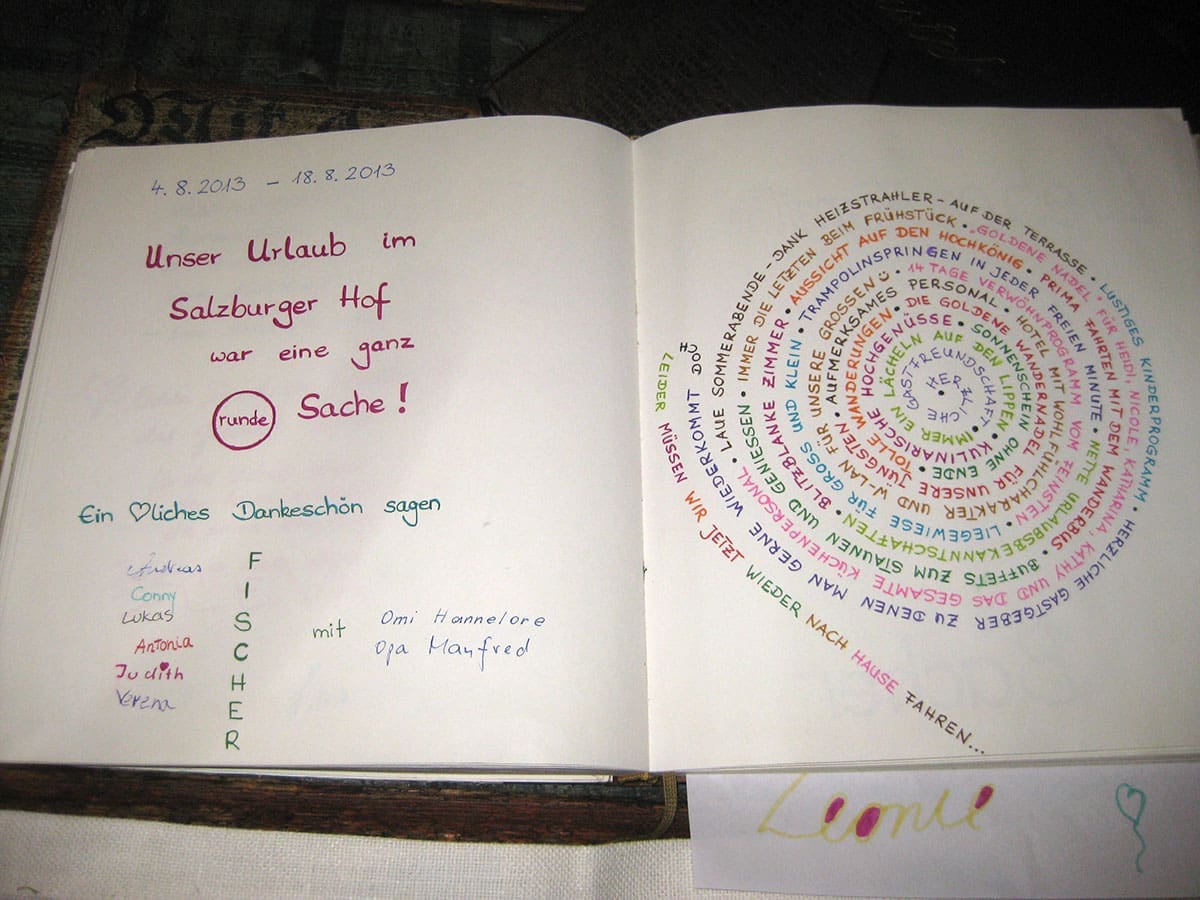 4.8.2013 – 18.8.2013
Unser Urlaub im
Salzburger Hof
war eine ganz
runde Sache!
Ein ♡liches Dankeschön sagen
Andreas
Conny
Lukas
Antonia
Judith
Verena
FISCHER
mit
Omi Hannelore
Opa Manfred
HERZLICHE GASTFREUNDSCHAFT • IMMER EIN LÄCHELN AUF DEN LIPPEN • KULINARISCHE HOCHGENÜSSE • SONNENSCHEIN OHNE ENDE • TOLLE WANDERUNGEN • DIE GOLDENE WANDERNADEL FÜR UNSERE JÜNGSTEN • AUFMERKSAMES PERSONAL • HOTEL MIT WOHLFÜHLCHARAKTER UND W-LAN FÜR UNSERE GROSSEN ☺ • 14 TAGE VERWÖHNPROGRAMM VOM FEINSTEN • LIEGEWIESE FÜR GROSS UND KLEIN • TRAMPOLINSPRINGEN IN JEDER FREIEN MINUTE • NETTE URLAUBSBEKANNTSCHAFTEN • BLITZBLANKE ZIMMER • AUSSICHT AUF DEN HOCHKÖNIG • PRIMA FAHRTEN MIT DEM WANDERBUS • BUFFETS ZUM STAUNEN UND GENIESSEN • IMMER DIE LETZTEN BEIM FRÜHSTÜCK • „GOLDENE NADEL" FÜR HEIDI, NICOLE, KATHARINA, KATHY UND DAS GESAMTE KÜCHENPERSONAL • LAUE SOMMERABENDE – DANK HEIZSTRAHLER – AUF DER TERRASSE • LUSTIGES KINDERPROGRAMM • HERZLICHE GASTGEBER ZU DENEN MAN GERNE WIEDERKOMMT DOCH
LEIDER MÜSSEN WIR JETZT WIEDER NACH HAUSE FAHREN...
Leonie